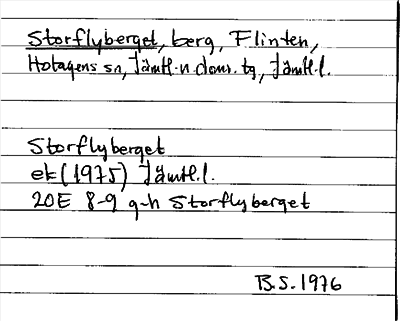 Storflyberget, berg, Flinten,
Hotagens sn, Jämtl. n. doms. tg, Jämtl.l.
Storflyberget
ek (1975) Jämtl.l.
20E 8-9 g-h Storflyberget
B.S. 1976